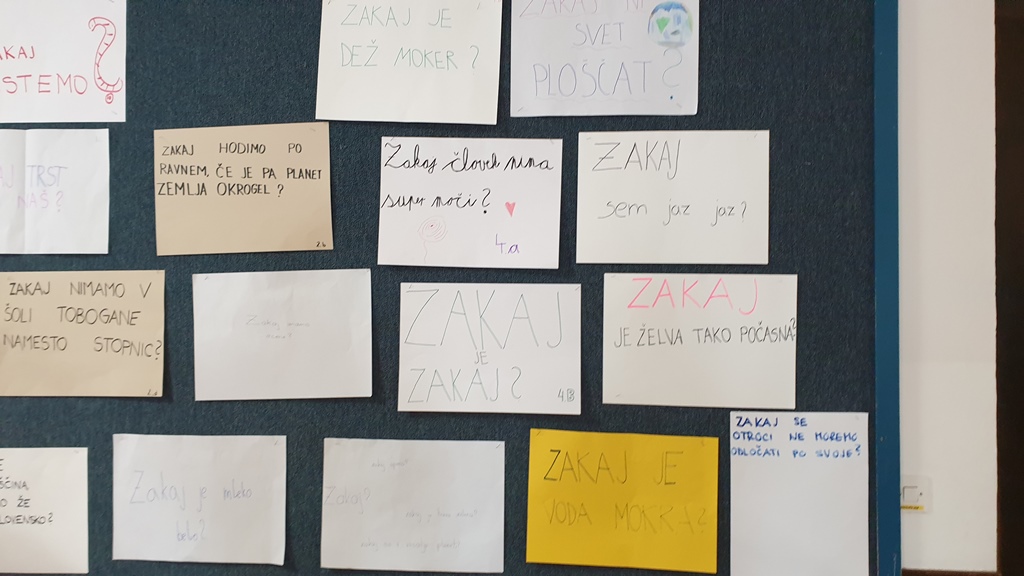 ZAKAJ JE
DEŽ MOKER?
ZAKAJ NI
SVET
PLOŠČAT?
TRST
NAŠ?
ZAKAJ HODIMO PO
RAVNEM, ČE JE PA PLANET
ZEMLJA OKROGEL?
2.b
Zakaj človek nima
super moči?
4.a
ZAKAJ
sem jaz jaz?
ZAKAJ NIMAMO V
ŠOLI TOBOGANE
NAMESTO STOPNIC?
ZAKAJ
JE
ZAKAJ?
4.B
ZAKAJ
JE ŽELVA TAKO POČASNA?
ŽE
Zakaj je mleko
belo?
Zakaj?
ZAKAJ JE
VODA MOKRA?
ZAKAJ SE
OTROCI NE MOREMO
ODLOČATI PO SVOJE?